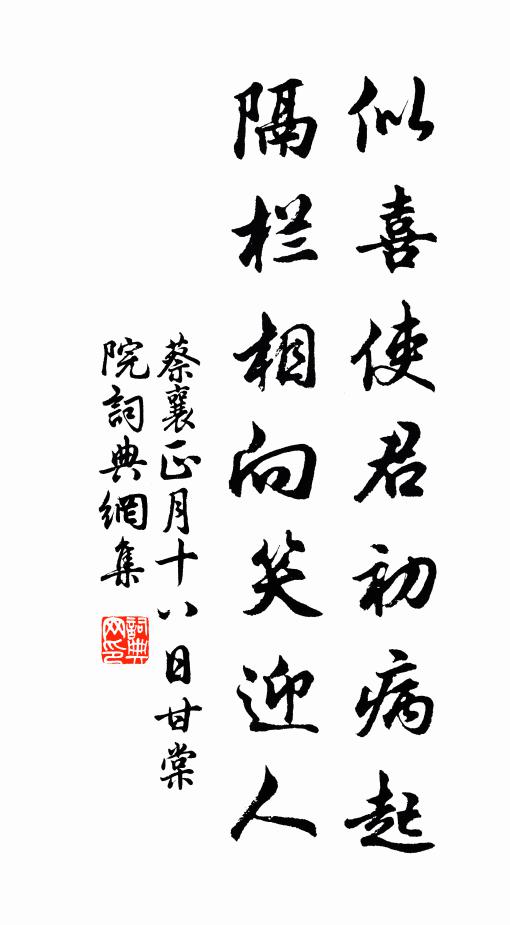 似喜使君初病起
隔栏相向笑迎人
蔡襄正月十八日甘棠
院詞典網集
詞典网印